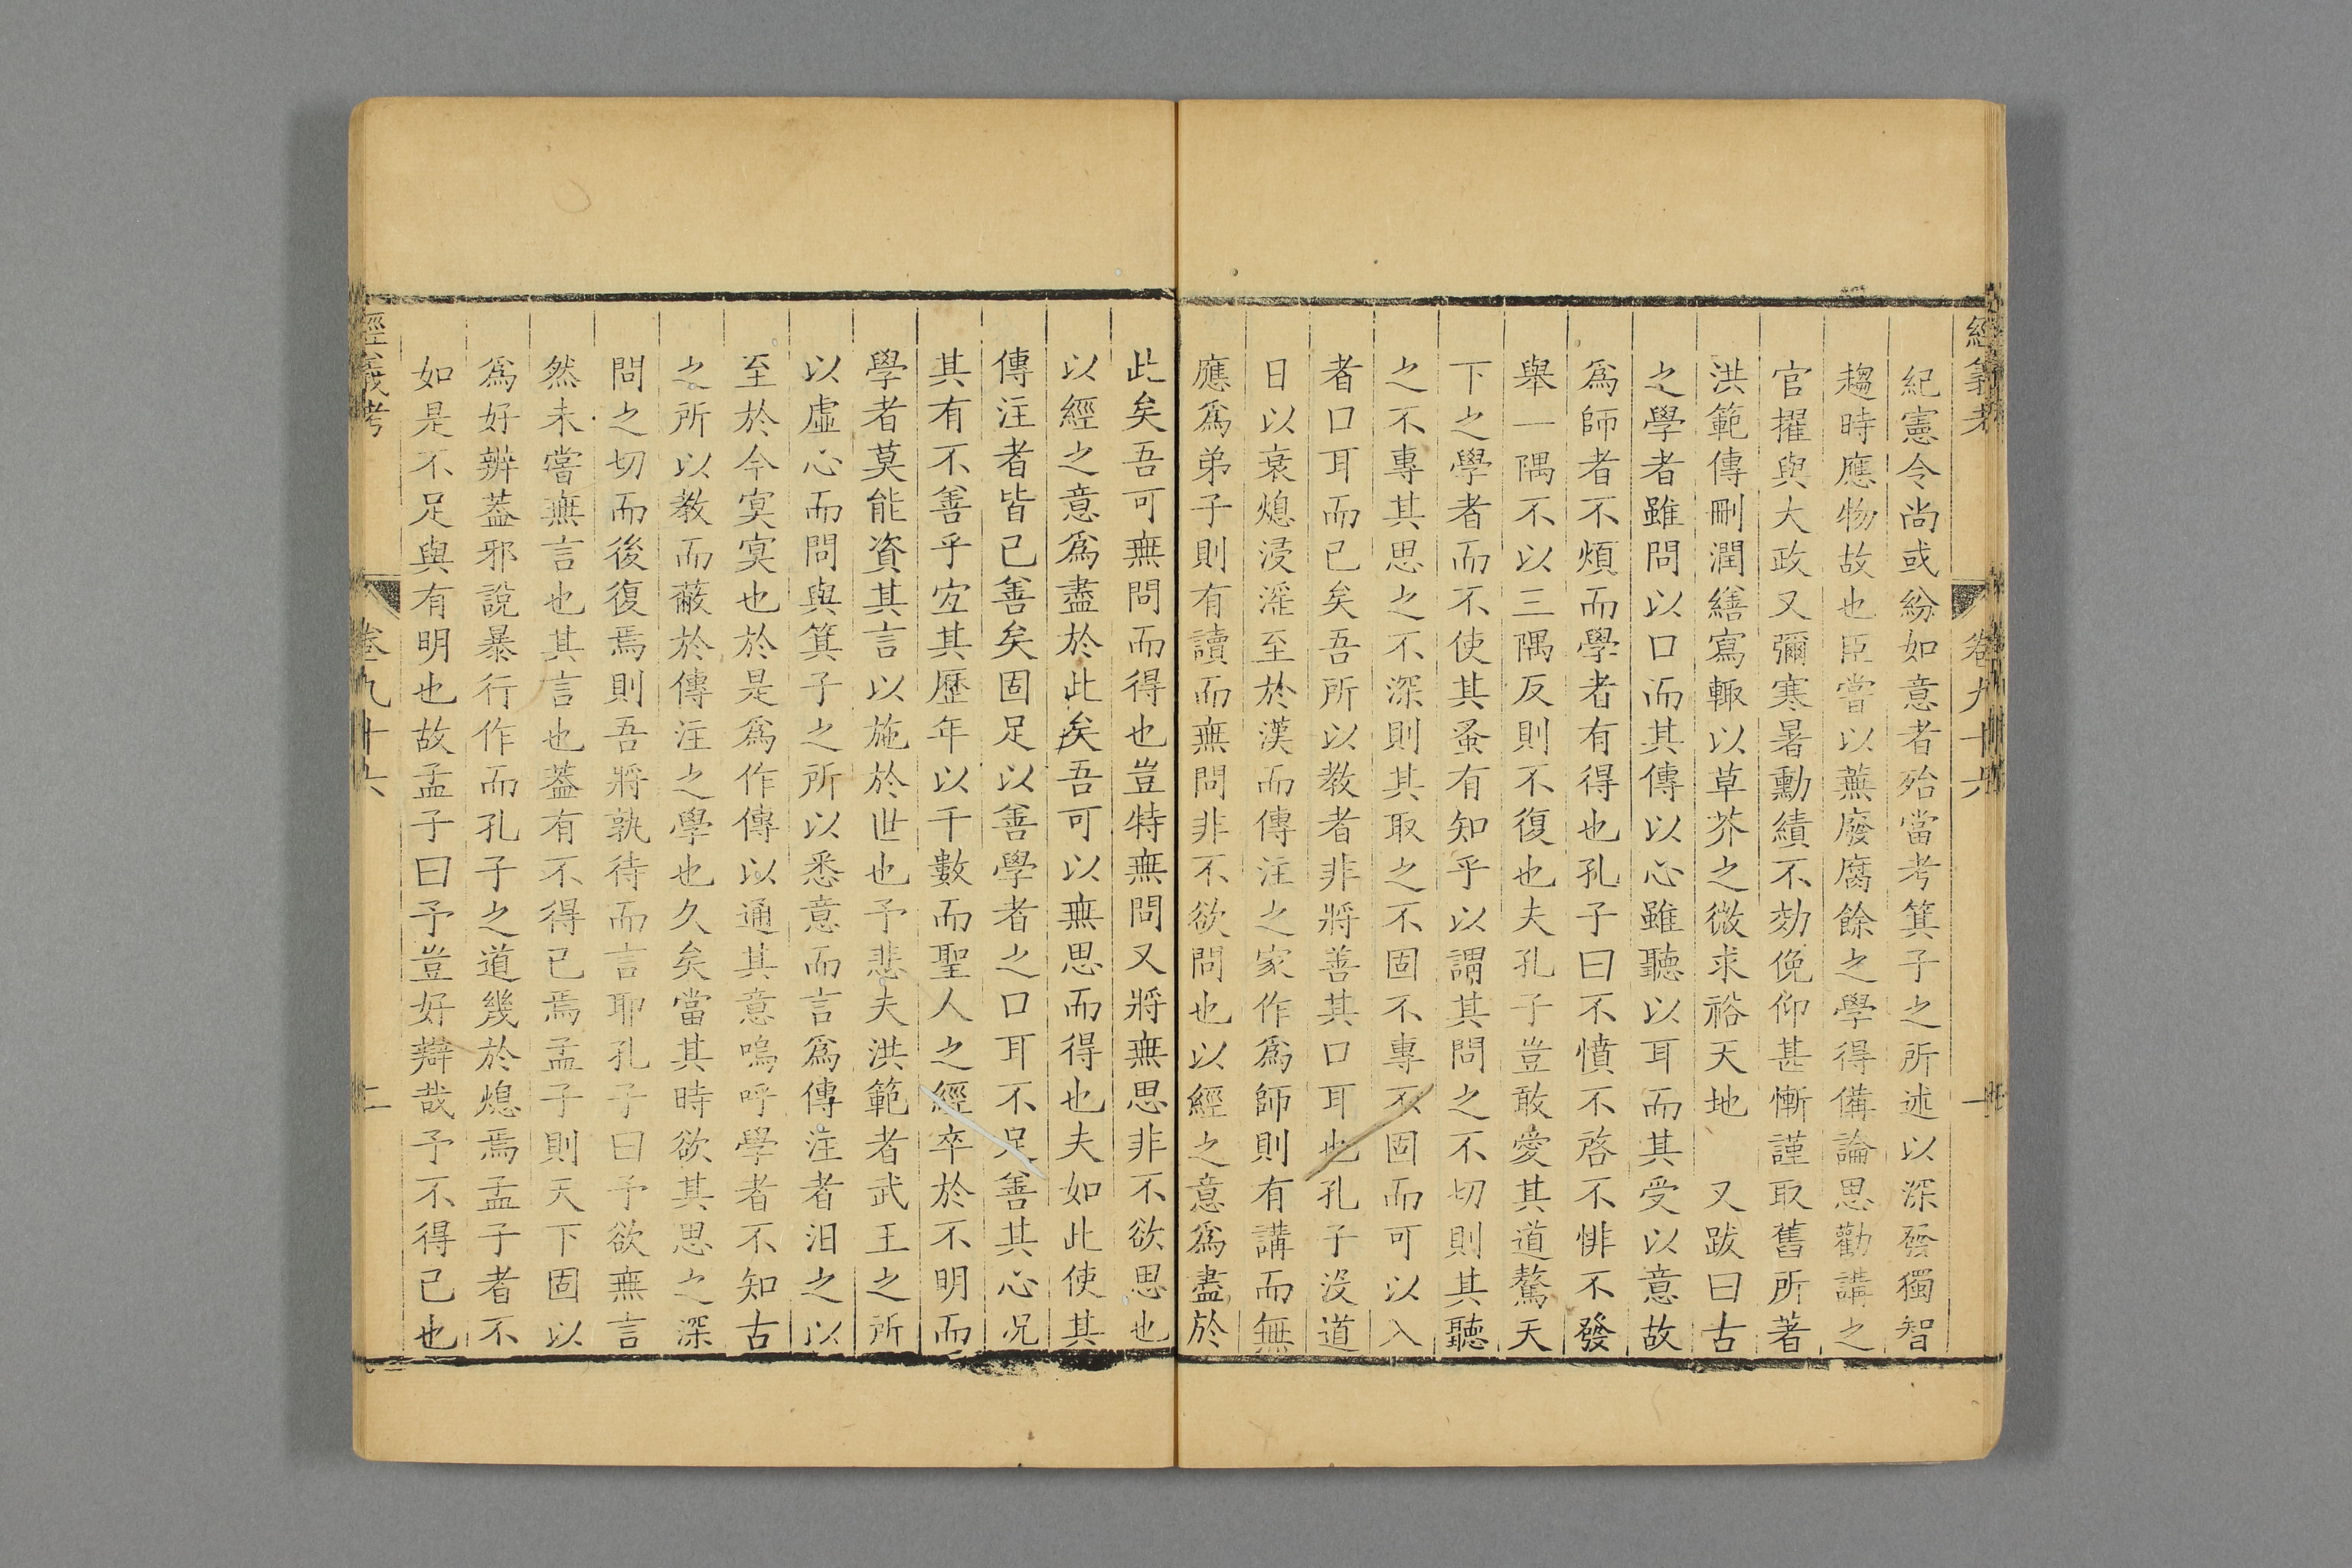 經義考 卷九十六 一
紀憲令尚或紛如意者殆當考箕子之所述以深發獨智
趨時應物故也臣嘗以蕪廢腐餘之學得備論思勸講之
官擢與大政又彌寒暑勳績不効俛仰甚慚謹取舊所著
洪範傳刪潤繕寫輒以草芥之微求裕天地 又跋曰古
之學者雖問以口而其傳以心雖聽以耳而其受以意故
爲師者不煩而學者有得也孔子曰不憤不啓不悱不發
舉一隅不以三隅反則不復也夫孔子豈敢愛其道驁天
下之學者而不使其蚤有知乎以謂其問之不切則其聽
之不專其思之不深則其取之不固不專不固而可以入
者口耳而已矣吾所以教者非將善其口耳也孔子沒道
日以衰熄浸淫至於漢而傳注之家作爲師則有講而無
應爲弟子則有讀而無問非不欲問也以經之意爲盡於
此矣吾可無問而得也豈特無問又將無思非不欲思也
以經之意爲盡於此矣吾可以無思而得也夫如此使其
傳注者皆已善矣固足以善學者之口耳不足善其心況
其有不善乎宐其歷年以千數而聖人之經卒於不明而
學者莫能資其言以施於世也予悲夫洪範者武王之所
以虛心而問與箕子之所以悉意而言爲傳注者汨之以
至於今冥冥也於是爲作傳以通其意嗚呼學者不知古
之所以教而蔽於傳注之學也久矣當其時欲其思之深
問之切而後復焉則吾將孰待而言耶孔子曰予欲無言
然未嘗無言也其言也蓋有不得已焉孟子則天下固以
爲好辨蓋邪說暴行作而孔子之道幾於熄焉孟子者不
如是不足與有明也故孟子曰予豈好辯哉予不得已也
經義考 卷九十六 二